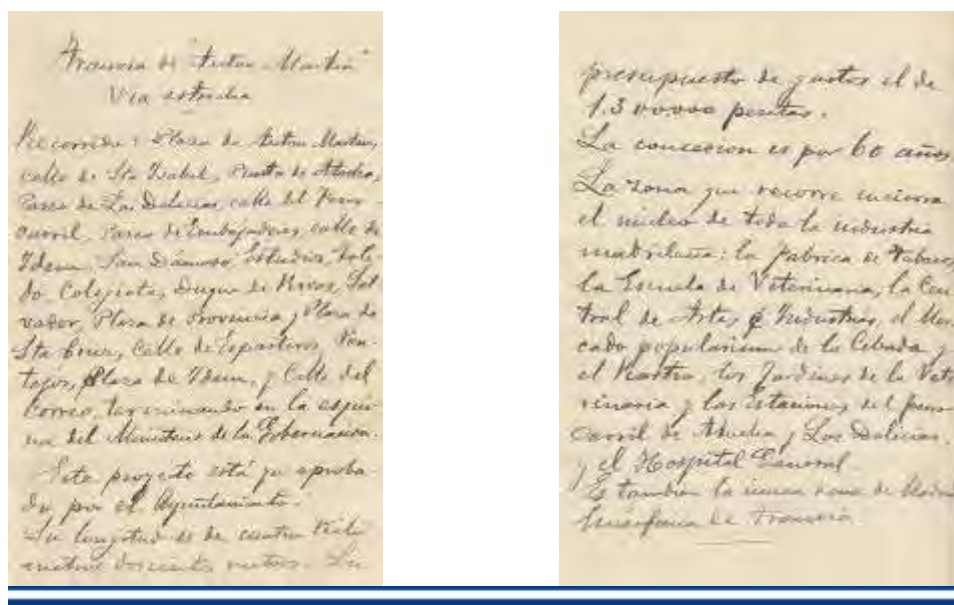 Tranvia de "Anton Martin"
Via estrecha
Recorrido: Plaza de Anton Martin,
calle de Sta Isabel, Puerta de Atocha,
Paseo de Las Delicias, calle del Ferro-
carril, Paseo de Embajadores, calle de
Idem, San Dámaso, Estudios, Tole-
do, Colegiata, Duque de Rivas, Sal-
vador, Plaza de Provincia y Plaza de
Sta Cruz, Calle de Esparteros, Pon-
tejos, Plaza de Idem, y Calle del
Correo, terminando en la esqui-
na del Ministerio de la Gobernacion.
Este proyecto está ya aproba-
do por el Ayuntamiento.
Su longitud es de cuatro kiló
metros doscientos metros. Su
presupuesto de gastos el de
1.300.000 pesetas.
La concesion es por 60 años
La zona que recorre encierra
el núcleo de toda la industria
madrileña: la fabrica de Tabacos,
la Escuela de Veterinaria, la Cen
tral de Artes é Industrias, el Mer
cado popularisimo de la Cebada y
el Rastro, los Jardines de la Vete
rinaria y las estaciones del ferro
carril de Atocha y Las Delicias,
y el Hospital General
Es tambien la unica zona de Madrid
huérfana de tranvia.